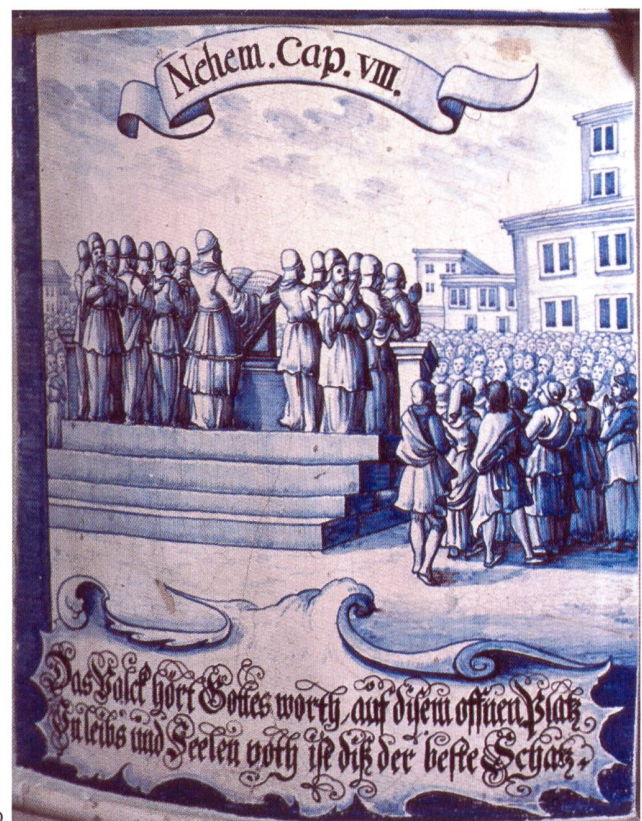 Nehem. Cap. VIII.
Das Volck hört Gottes worth, auf disem offnen Platz,
In leibs und Seelen noth ist diß der beste Schatz.